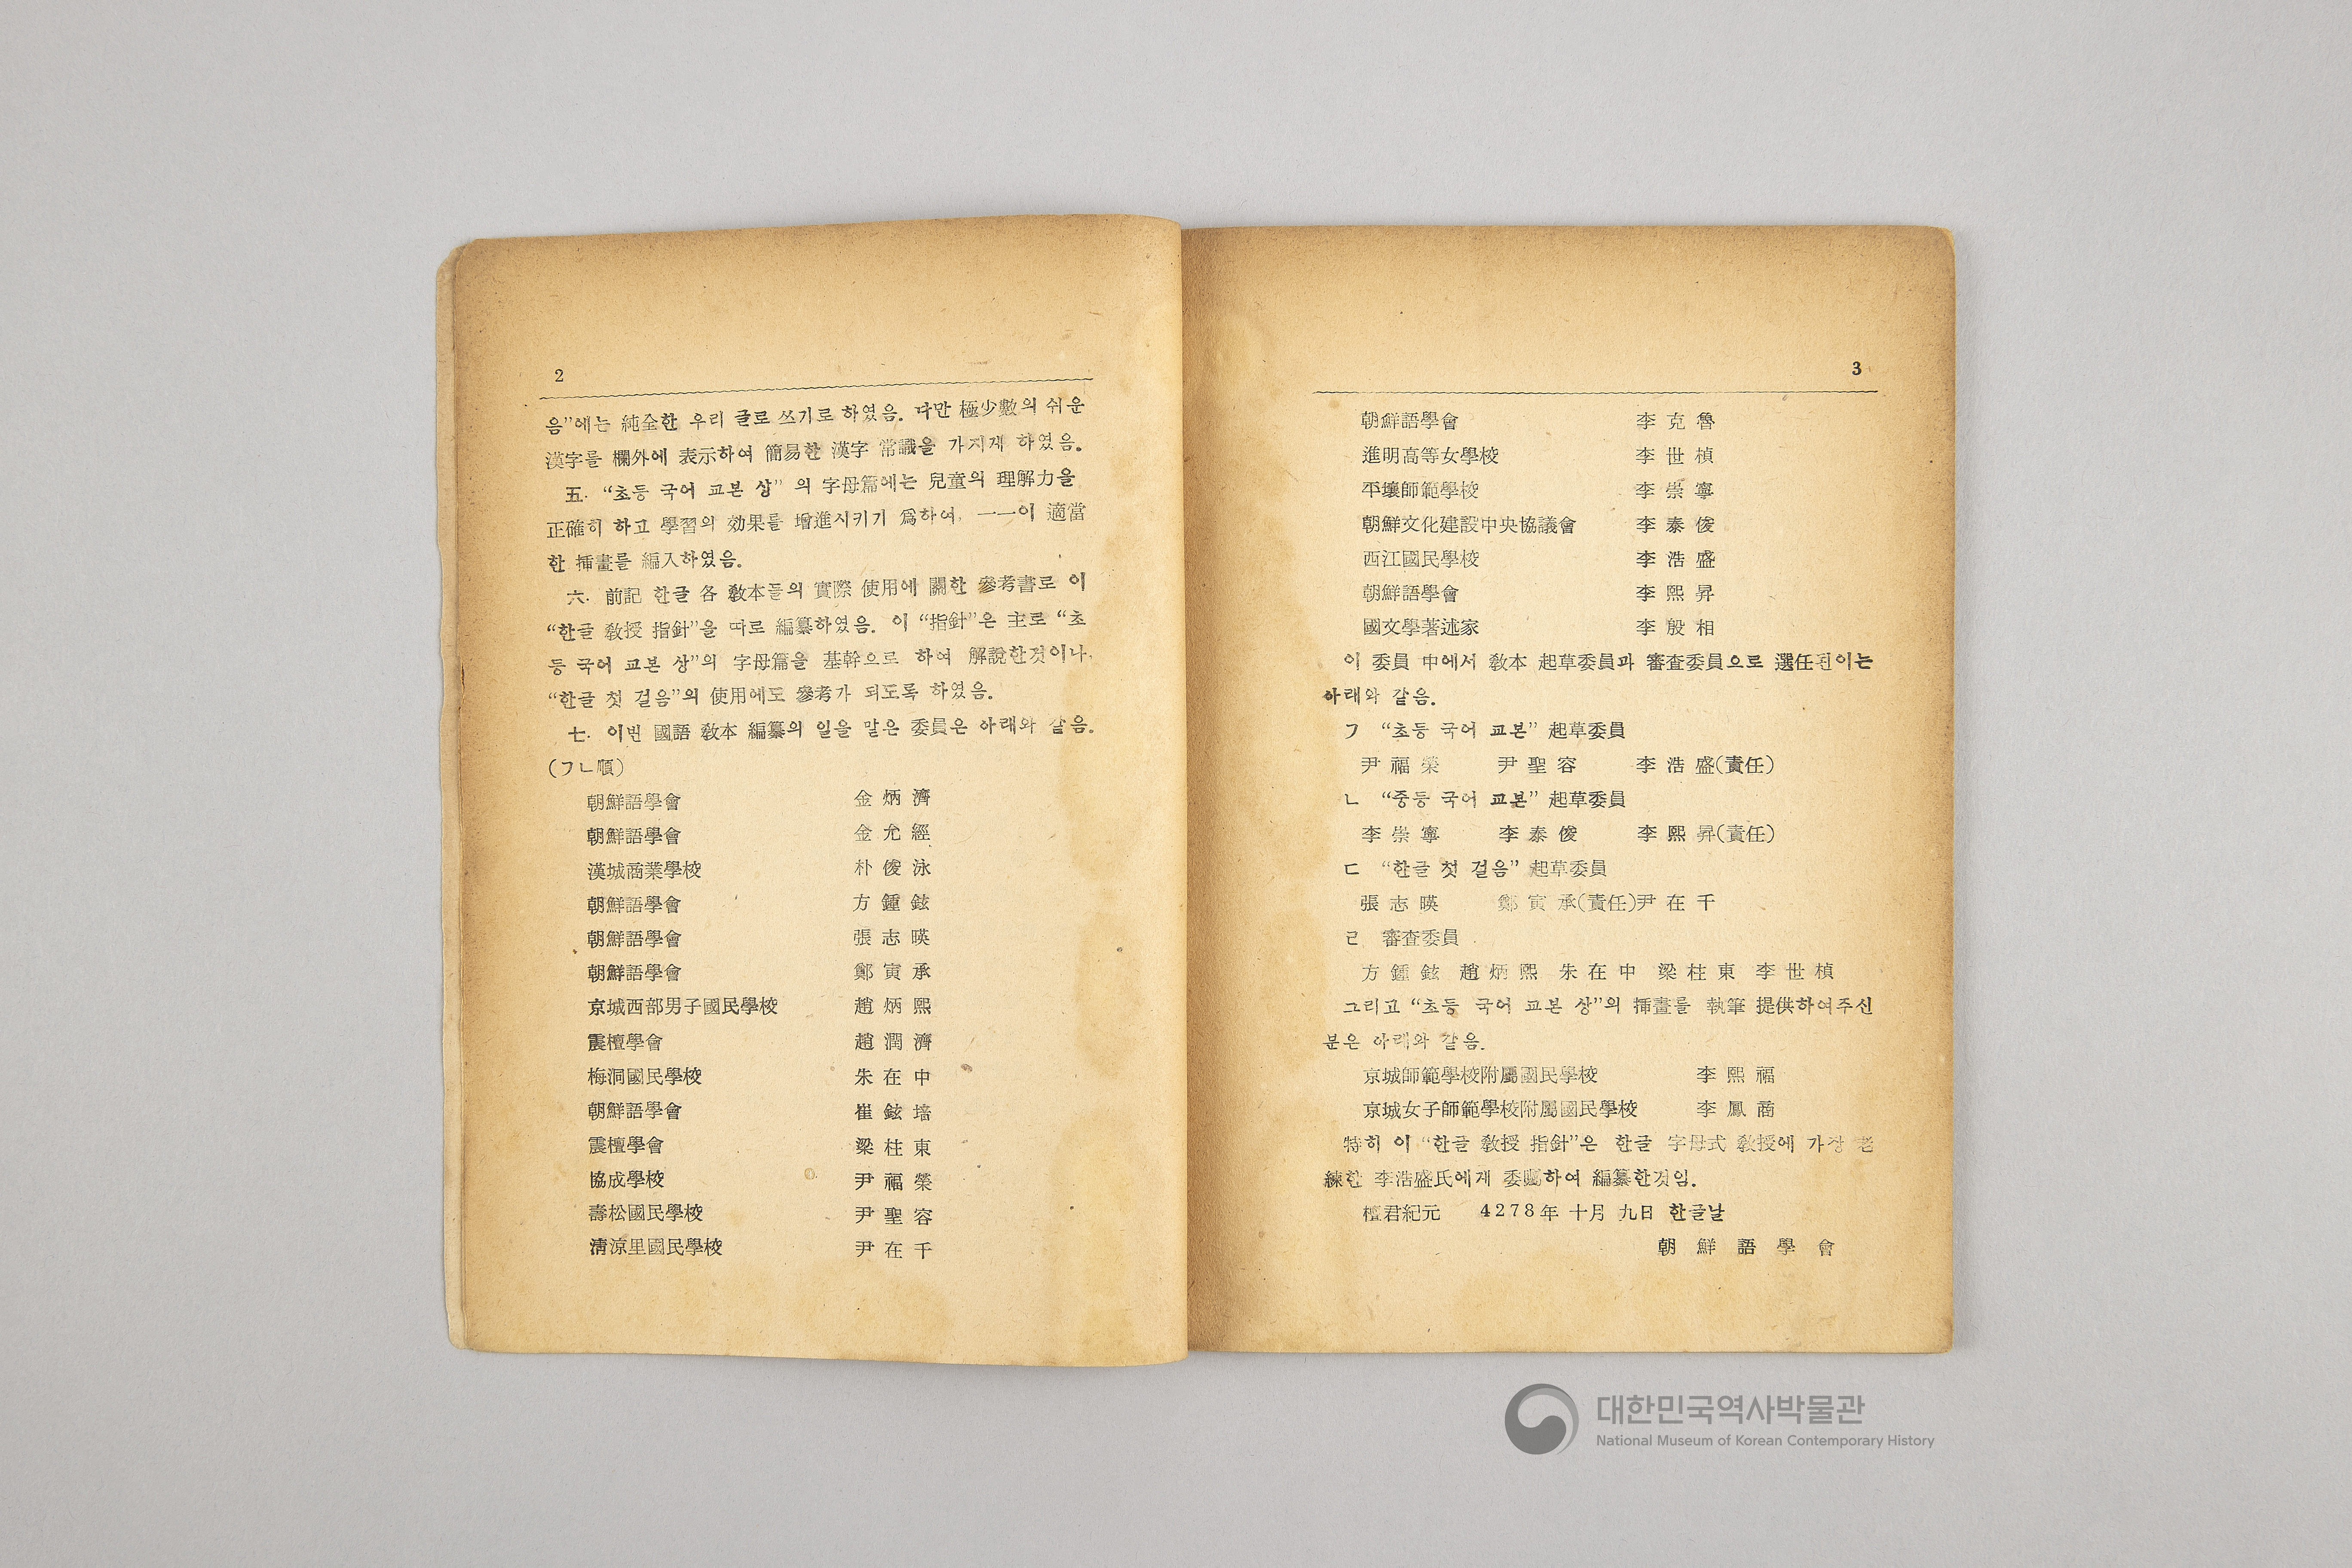 2
음”에는 純全한 우리 글로 쓰기로 하였음. 다만 極少數의 쉬운
漢字를 欄外에 表示하여 簡易한 漢字 常識을 가지게 하였음.
五. “초등 국어 교본 상” 의 字母篇에는 兒童의 理解力을
正確히 하고 學習의 効果를 增進시키기 爲하여, 一一이 適當
한 揷畫를 編入하였음.
六. 前記 한글 各 敎本들의 實際 使用에 關한 參考書로 이
“한글 敎授 指針”을 따로 編纂하였음. 이 “指針”은 主로 “초
등 국어 교본 상”의 字母篇을 基幹으로 하여 解說한것이나,
“한글 첫 걸음”의 使用에도 參考가 되도록 하였음.
七. 이번 國語 敎本 編纂의 일을 맡은 委員은 아래와 같음.
(ㄱㄴ順)
朝鮮語學會 金炳濟
朝鮮語學會 金允經
漢城商業學校 朴俊泳
朝鮮語學會 方鍾鉉
朝鮮語學會 張志暎
朝鮮語學會 鄭寅承
京城西部男子國民學校 趙炳熙
震檀學會 趙潤濟
梅洞國民學校 朱在中
朝鮮語學會 崔鉉培
震檀學會 梁柱東
協成學校 尹福榮
壽松國民學校 尹聖容
淸涼里國民學校 尹在千
3
朝鮮語學會 李克魯
進明高等女學校 李世楨
平壤師範學校 李崇寧
朝鮮文化建設中央協議會 李泰俊
西江國民學校 李浩盛
朝鮮語學會 李熙昇
國文學著述家 李殷相
이 委員 中에서 敎本 起草委員과 審査委員으로 選任된이는
아래와 같음.
ㄱ “초등 국어 교본” 起草委員
尹福榮 尹聖容 李浩盛(責任)
ㄴ “중등 국어 교본” 起草委員
李崇寧 李泰俊 李熙昇(責任)
ㄷ “한글 첫 걸음” 起草委員
張志暎 鄭寅承(責任)尹在千
ㄹ 審査委員
方鍾鉉 趙炳熙 朱在中 梁柱東 李世楨
그리고 “초등 국어 교본 상”의 揷畫를 執筆 提供하여주신
분은 아래와 같음.
京城師範學校附屬國民學校 李熙福
京城女子師範學校附屬國民學校 李鳳商
特히 이 “한글 敎授 指針”은 한글 字母式 敎授에 가장 老
練한 李浩盛氏에게 委囑하여 編纂한것임.
檀君紀元 4278年 十月 九日 한글날
朝鮮語學會
대한민국역사박물관
National Museum of Korean Contemporary History